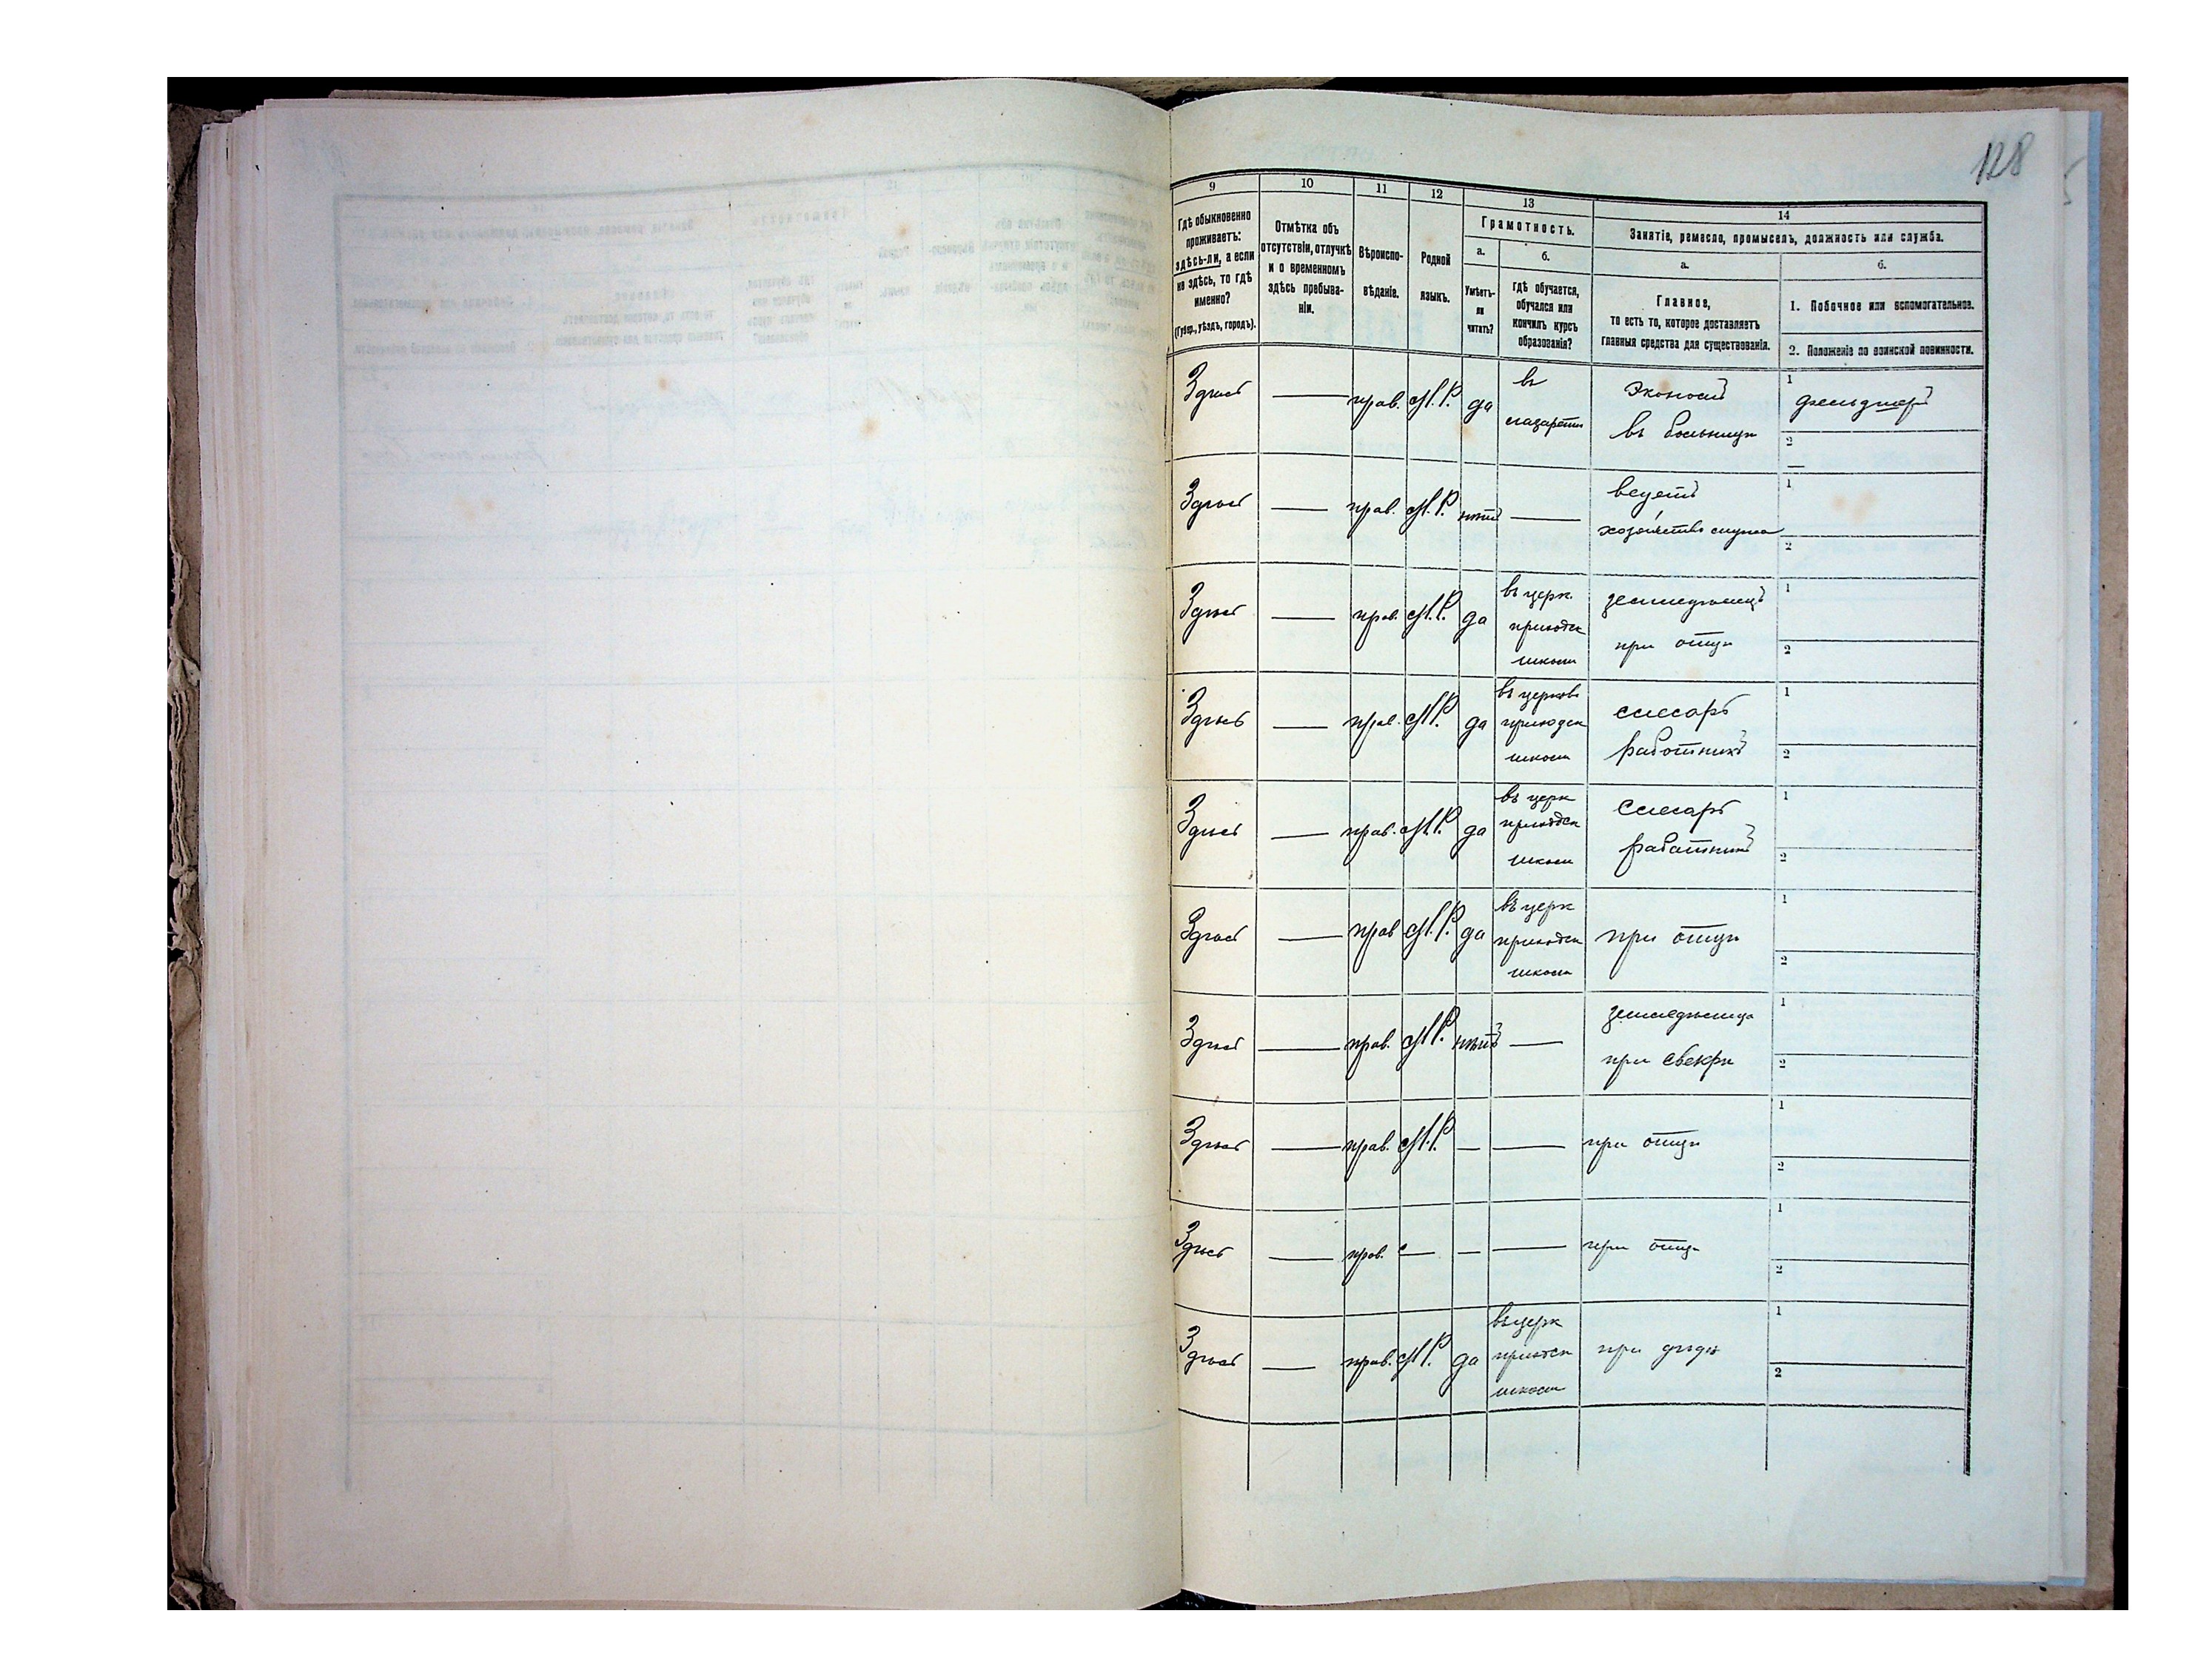 128
9 10 11 12 13 14
Гдѣ обыкновенно
проживаетъ:
здѣсь-ли, а если
не здѣсь, то гдѣ
именно?
(Губер., уѣздъ, городъ).
Отмѣтка объ
отсутствіи, отлучкѣ
и о временномъ
здѣсь пребыва-
ніи.
Вѣроиспо-
вѣданіе.
Родной
языкъ.
Грамотность.
а. б.
Умѣетъ-
ли
читать?
гдѣ обучается,
обучался или
кончилъ курсъ
образованія?
Занятіе, ремесло, промыселъ, должность или служба.
а. б.
Главное,
то есть то, которое доставляетъ
главныя средства для существованія.
1. Побочное или вспомогательное.
2. Положеніе по воинской повинности.
Здѣсь — прав. М.Р. да
въ
лазаретѣ
Экономъ
въ больницѣ
1
фельдшеръ
2
—
Здѣсь — прав. М.Р. нѣтъ —
ведетъ
хозяйство
1
2
Здѣсь — прав. М.Р. да
въ церк.
приходск
школѣ
земледѣлецъ
при отцѣ
1
2
Здѣсь — прав. М.Р. да
въ церковн
приходск
школѣ
слесарь
работникъ
1
2
Здѣсь — прав. М.Р. да
въ церк
приходск
школѣ
Слесарь
работникъ
1
2
Здѣсь — прав М.Р. да
въ церк
приходск
школѣ
при отцѣ
1
2
Здѣсь — прав. М.Р. нѣтъ —
земледѣлица
при свекрѣ
1
2
Здѣсь — прав. М.Р. — — при отцѣ
1
2
Здѣсь — прав. — — — при отцѣ
1
2
Здѣсь — прав. М.Р. да
въ церк
приходск
школѣ
при дѣдѣ
1
2